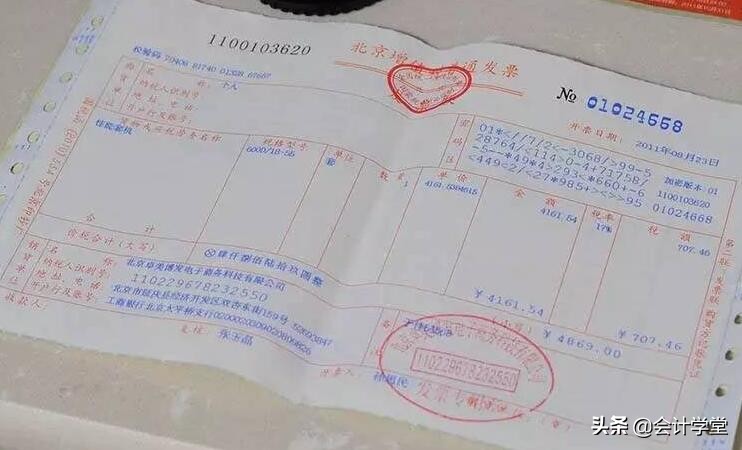 1100103620
北京增值 通发票
№ 01024668
校验码 70406 81740 01328 07667
开票日期: 2011年08月23日
名 称: 个人
纳税人识别号:
地 址、电 话:
开户行及账号:
密码区
01*<//7/2<-3068/>99-5
28764/<114>0-4+71758/
-5--*49*4>293<*660+-6
<449<2/<27*985+><>>95
加密版本:01
1100103620
01024668
货物或应税劳务名称 规格型号 单位 数量 单价 金额 税率 税额
佳能套机 600D/18-55 套 1 4161.5384615 4161.54 17% 707.46
合 计 ￥4161.54 ￥707.46
价税合计(大写) ⊗肆仟捌佰陆拾玖圆整 (小写) ￥4869.00
名 称: 北京卓美博发电子商务科技有限公司
纳税人识别号: 110229678232550
地 址、电 话: 北京市延庆县经济开发区双杏东街159号
开户行及账号: 工商银行北京太平桥支行
收款人:
复核: 张玉晶
开票人:
110229678232550
发票专用章
第二联:发票联 购货方记账凭证
头条 @会计学堂